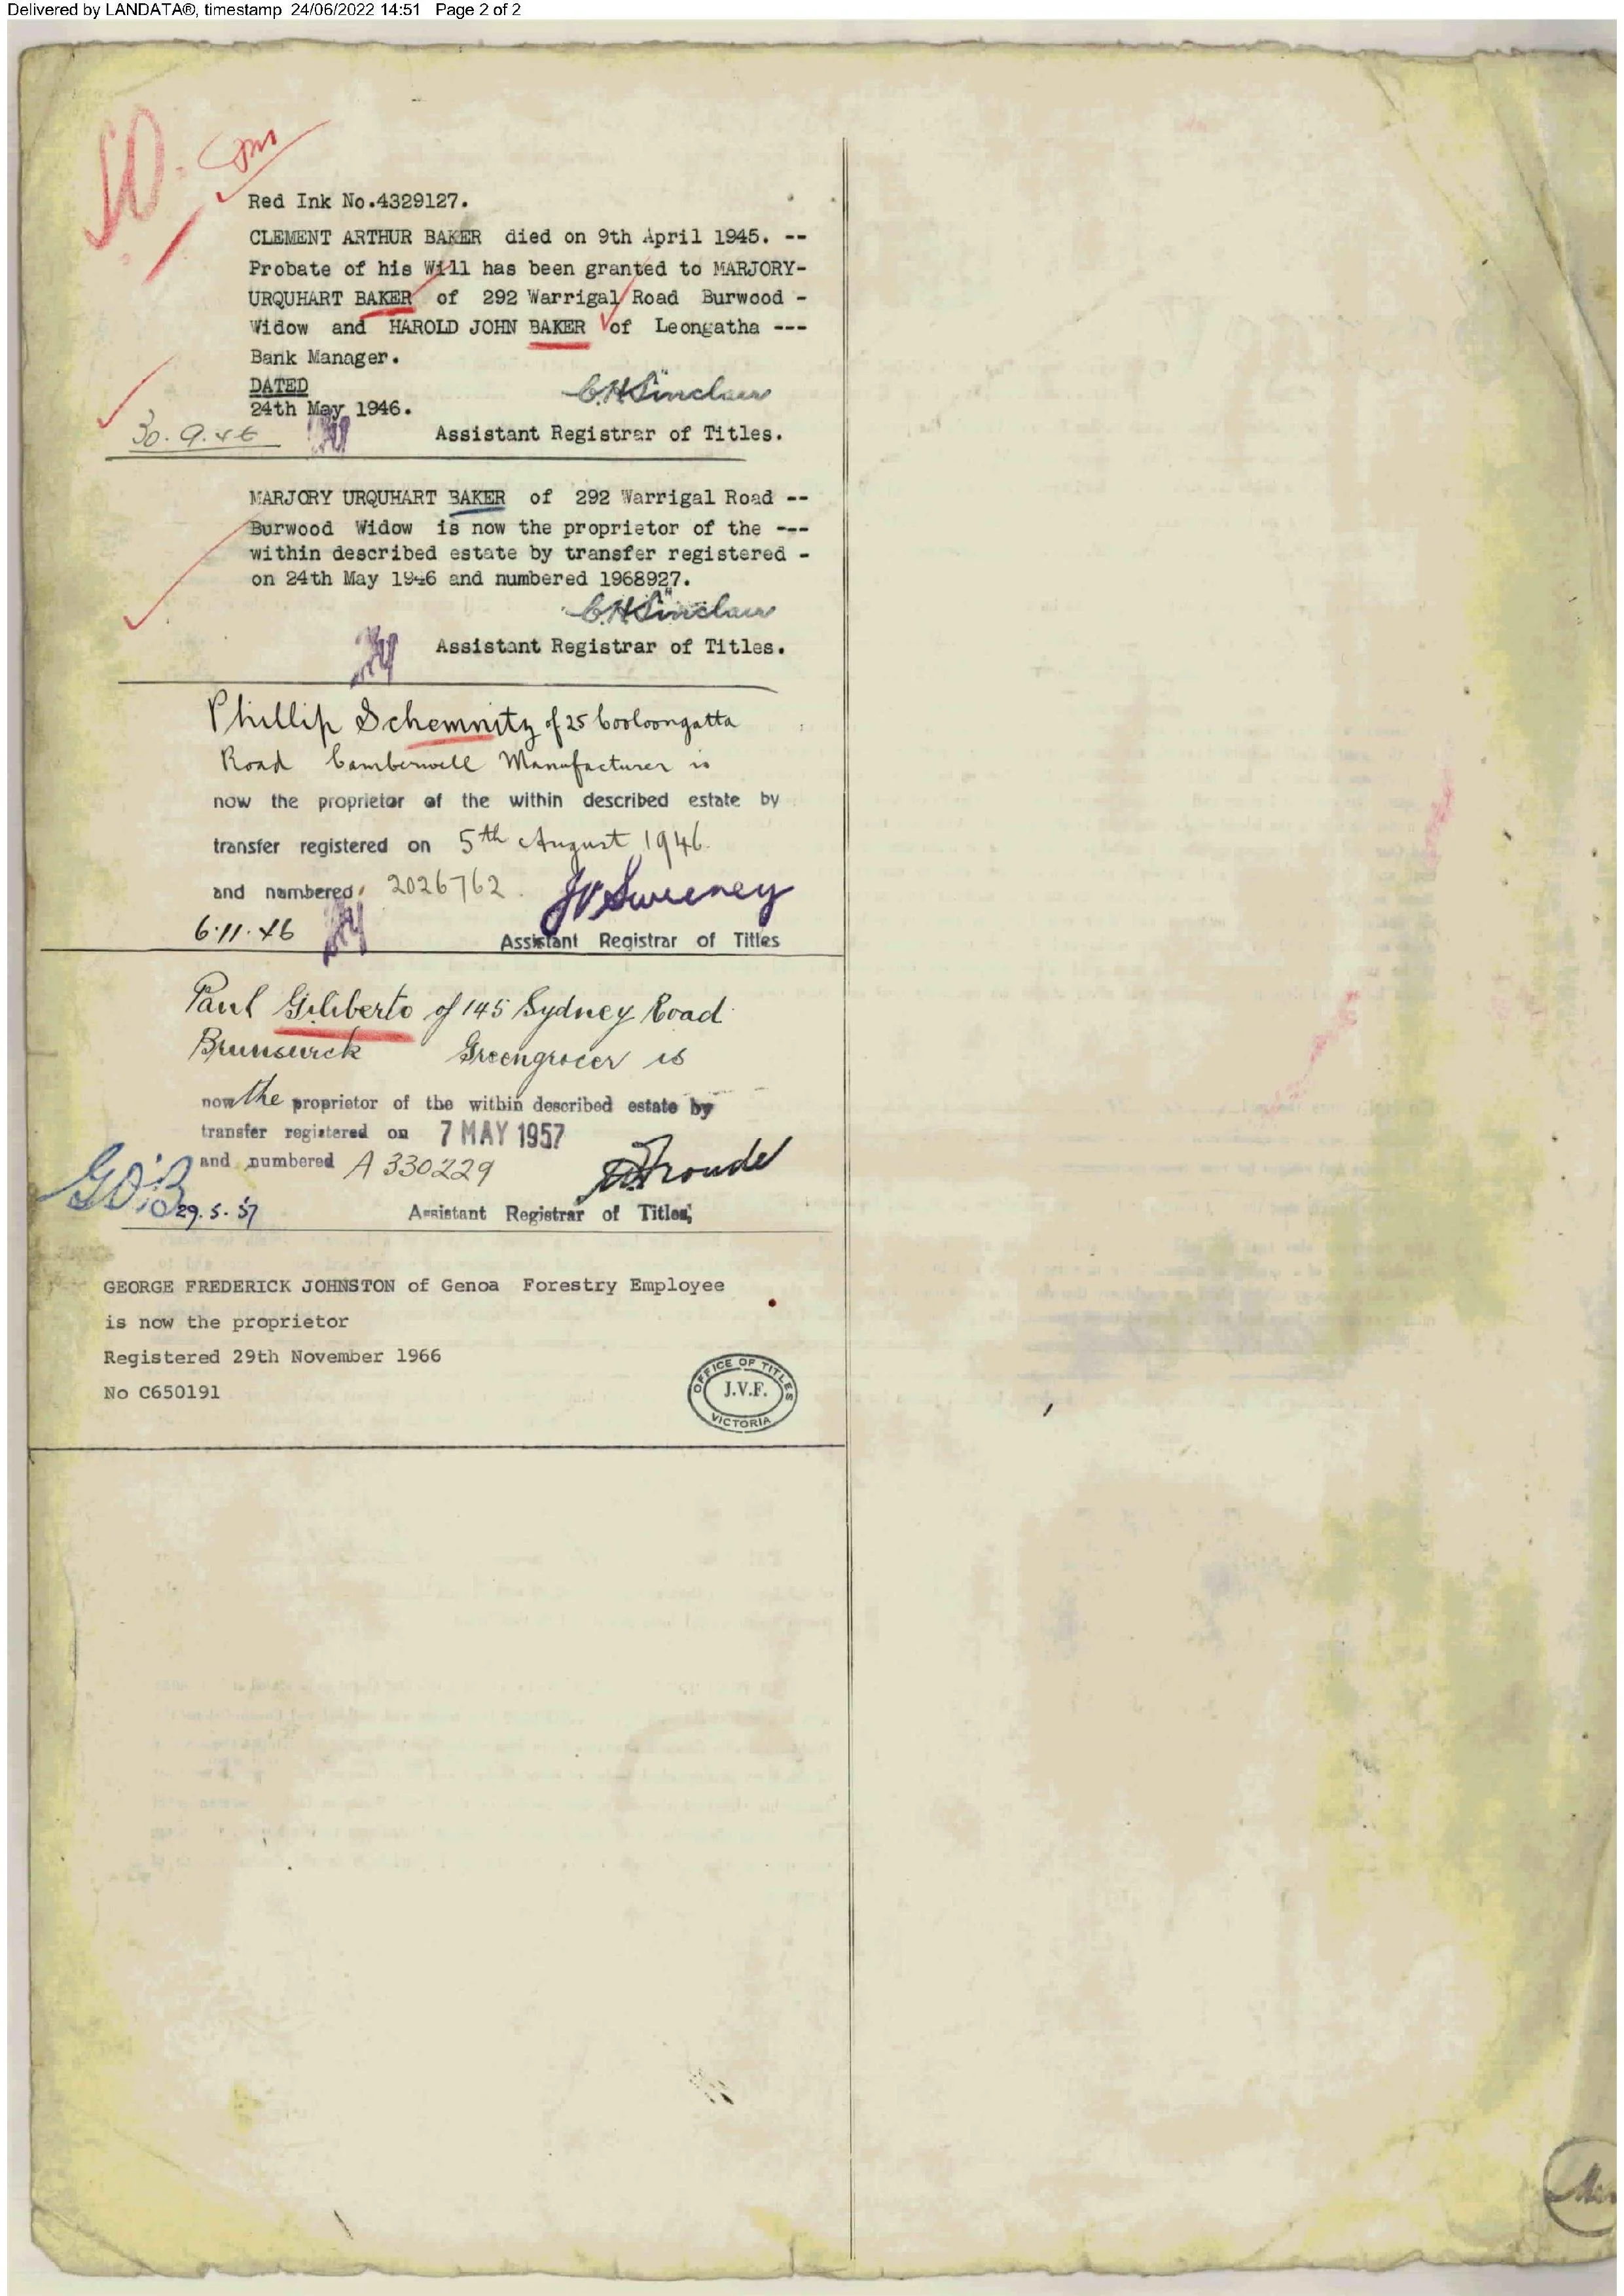 Delivered by LANDATA®, timestamp 24/06/2022 14:51 Page 2 of 2
Red Ink No.4329127.
CLEMENT ARTHUR BAKER died on 9th April 1945. --
Probate of his Will has been granted to MARJORY-
URQUHART BAKER of 292 Warrigal Road Burwood -
Widow and HAROLD JOHN BAKER of Leongatha ---
Bank Manager.
DATED
24th May 1946.
C.H. Sinclair
30.9.46
Assistant Registrar of Titles.
MARJORY URQUHART BAKER of 292 Warrigal Road --
Burwood Widow is now the proprietor of the ---
within described estate by transfer registered -
on 24th May 1946 and numbered 1968927.
C.H. Sinclair
Assistant Registrar of Titles.
Phillip Schemnitz of 25 Cooloongatta
Road Camberwell Manufacturer is
now the proprietor of the within described estate by
transfer registered on 5th August 1946.
and numbered 2026762.
Sweeney
6.11.46
Assistant Registrar of Titles
Paul Giliberto of 145 Sydney Road
Brunswick Greengrocer is
now the proprietor of the within described estate by
transfer registered on 7 MAY 1957
and numbered A 330229
29.5.57
Assistant Registrar of Titles;
GEORGE FREDERICK JOHNSTON of Genoa Forestry Employee
is now the proprietor
Registered 29th November 1966
No C650191
OFFICE OF TITLES
J.V.F.
VICTORIA